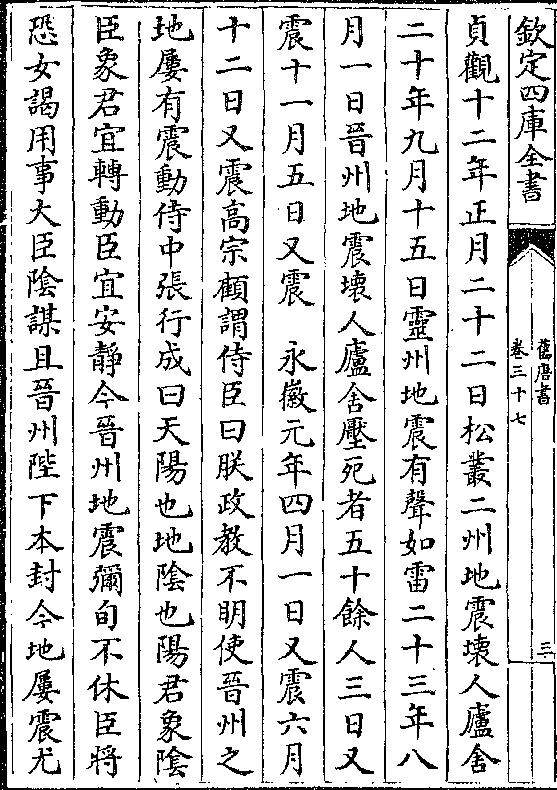 欽定四庫全書
舊唐書
卷三十七
三
貞觀十二年正月二十二日松叢二州地震壊人廬舎
二十年九月十五日靈州地震有聲如雷二十三年八
月一日晉州地震壊人廬舎壓死者五十餘人三日又
震十一月五日又震　永徽元年四月一日又震六月
十二日又震高宗顧謂侍臣曰朕政教不明使晉州之
地屢有震動侍中張行成曰天陽也地陰也陽君象陰
臣象君宜轉動臣宜安靜今晉州地震彌旬不休臣將
恐女謁用事大臣陰謀且晉州陛下本封今地屢震尤